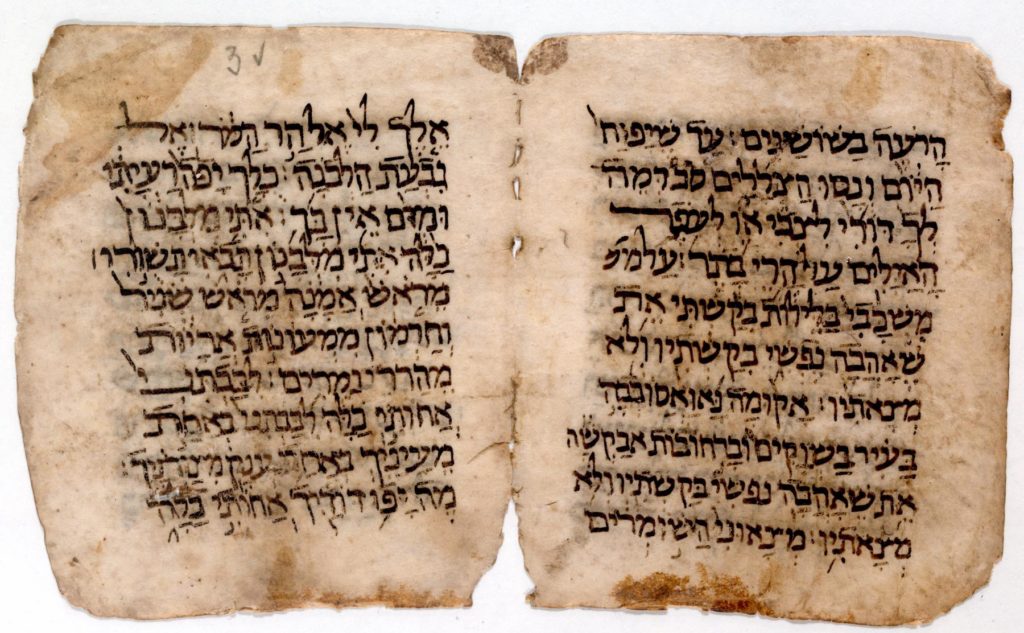 הרעה בשושנים : עד שיפוח
היום ונסו הצללים סב דמה
לך דודי לצבי או לעפר
האילים על הרי בתר : על מש
משכבי בלילות בקשתי את
שאהבה נפשי בקשתיו ולא
מצאתיו : אקומה נא ואסובבה
בעיר בשוקים וברחובות אבקשה
את שאהבה נפשי בקשתיו ולא
מצאתיו : מצאוני השומרים
3v
אלך לי אל הר המור ואל
גבעת הלבנה : כלך יפה רעיתי
ומום אין בך : אתי מלבנון
כלה אתי מלבנון תבאי תשורי ו
מראש אמנה מראש שניר
וחרמון ממעונות אריות
מהררי נמרים : לבבתני
אחותי כלה לבבתני באחת
מעיניך באחד ענק מצורניך
מה יפו דודיך אחותי כלה